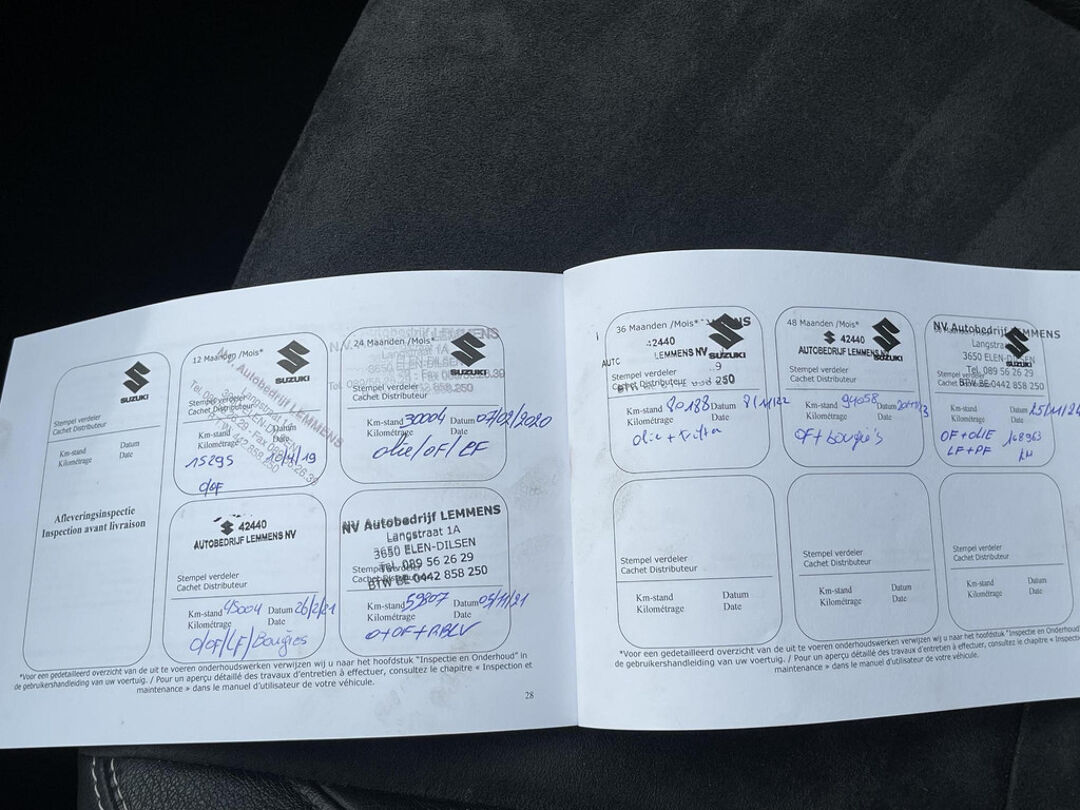 SUZUKI
Stempel verdeler
Cachet Distributeur
Datum
Km-stand
Date
Kilométrage
Afleveringsinspectie
Inspection avant livraison
12 Maanden /Mois*
SUZUKI
Autobedrijf LEMMENS
Km-stand
Datum
Kilométrage
Date
15295
24 Maanden /Mois*
SUZUKI
Stempel verdeler
Cachet Distributeur
Km-stand 30004 Datum 07/02/2020
Kilométrage Date
olie/OF/LF
42440
AUTOBEDRIJF LEMMENS NV
Stempel verdeler
Cachet Distributeur
Km-stand 45004 Datum 26/2/21
Kilométrage Date
O/OF/LF/Bougies
NV Autobedrijf LEMMENS
Langstraat 1A
3650 ELEN-DILSEN
Tel. 089 56 26 29
BTW BE 0442 858 250
Km-stand 59807 Datum 05/11/21
Kilométrage Date
*Voor een gedetailleerd overzicht van de uit te voeren onderhoudswerken verwijzen wij u naar het hoofdstuk "Inspectie en Onderhoud" in
de gebruikershandleiding van uw voertuig. / Pour un aperçu détaillé des travaux d'entretien à effectuer, consultez le chapitre « Inspection et
maintenance » dans le manuel d'utilisateur de votre véhicule.
28
36 Maanden /Mois*
SUZUKI
LEMMENS NV
Stempel verdeler
Cachet Distributeur
Km-stand 80188 Datum 8/11/22
Kilométrage Date
48 Maanden /Mois*
42440
AUTOBEDRIJF LEMMENS NV
SUZUKI
Stempel verdeler
Cachet Distributeur
Km-stand 94058 Datum
Kilométrage Date
OF + bougie's
NV Autobedrijf LEMMENS
3650 ELEN-DILSEN
Tel. 089 56 26 29
BTW BE 0442 858 250
SUZUKI
Km-stand Datum
Kilométrage Date
OF + OLIE
LF + PF
Stempel verdeler
Cachet Distributeur
Km-stand Datum
Kilométrage Date
Stempel verdeler
Cachet Distributeur
Km-stand Datum
Kilométrage Date
Stempel verdeler
Cachet Distributeur
Km-stand Datum
Kilométrage Date
*Voor een gedetailleerd overzicht van de uit te voeren onderhoudswerken verwijzen wij u naar het hoofdstuk "Inspectie en Onderhoud
de gebruikershandleiding van uw voertuig. / Pour un aperçu détaillé des travaux d'entretien à effectuer, consultez le chapitre « Inspect
maintenance » dans le manuel d'utilisateur de votre véhicule.